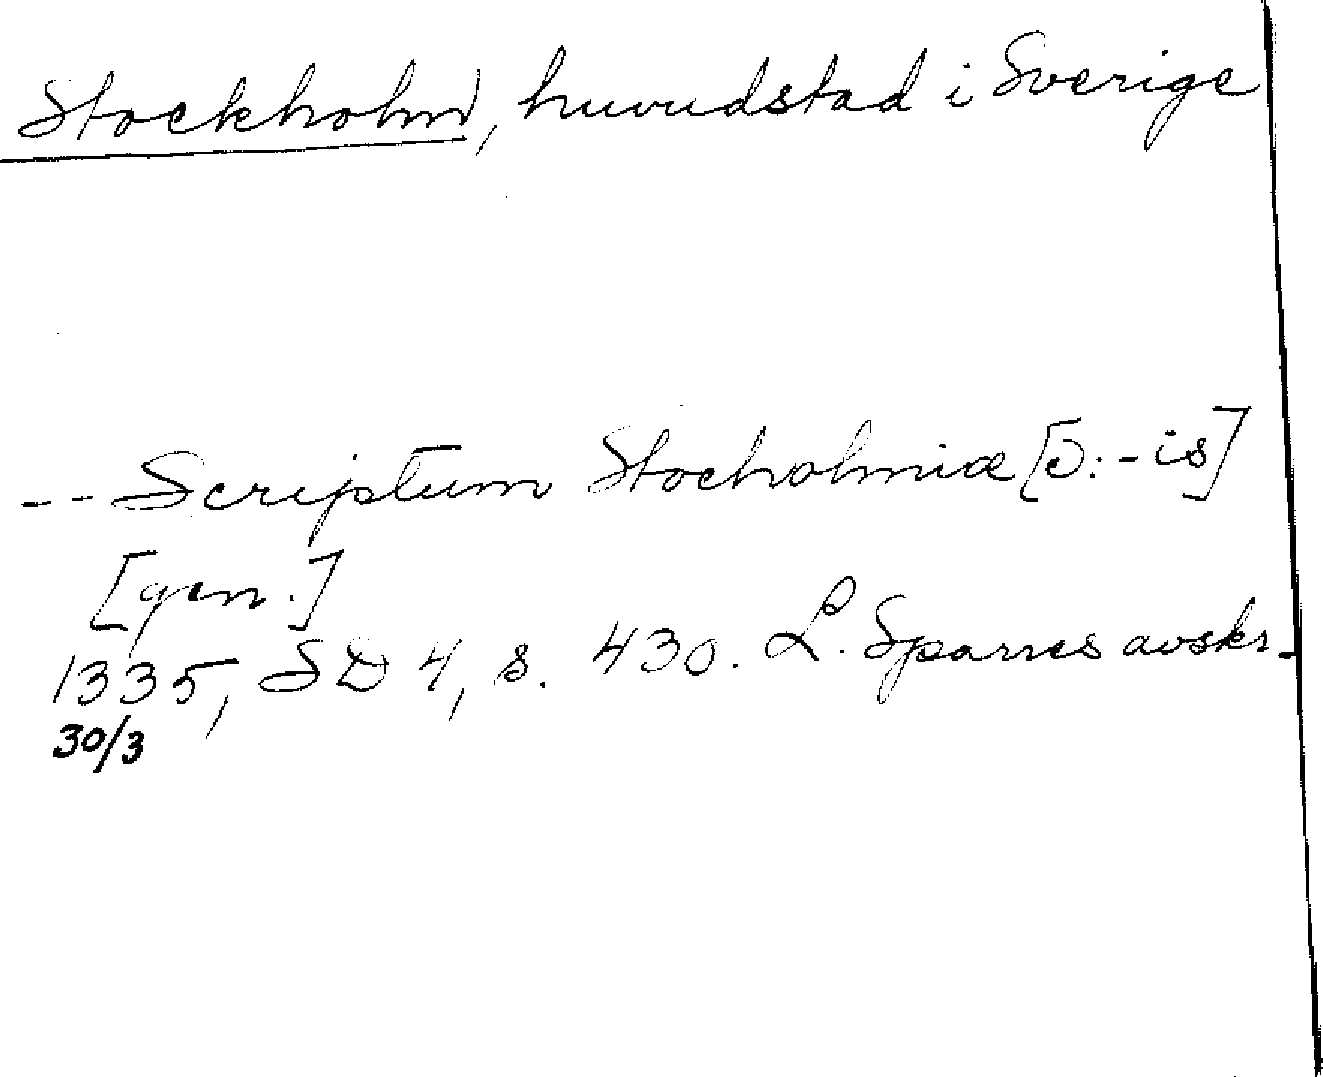 Stockholm, huvudstad i Sverige
-- Scriptum Stocholmiæ [ɔ: -is]
[gen.]
1335, SD 4, s. 430. L. Sparres avskr.
30/3